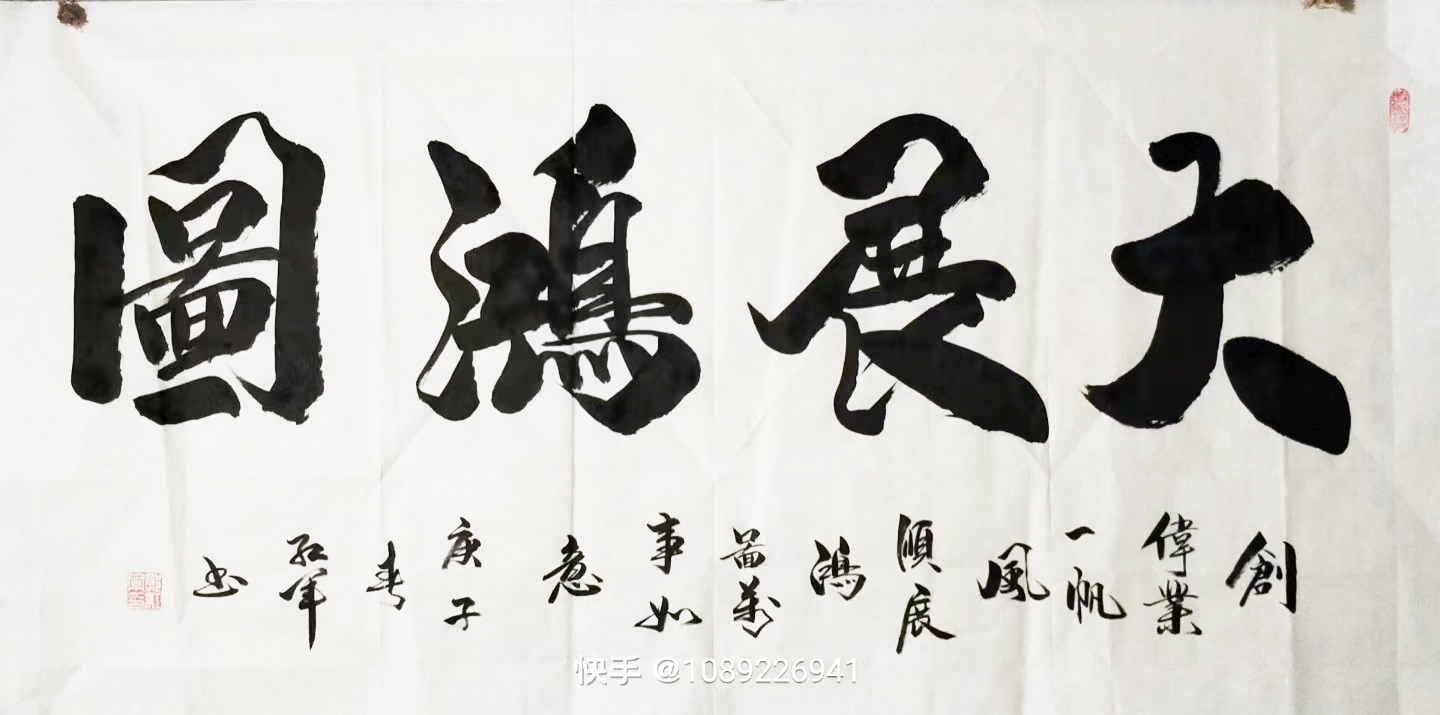 大展鴻圖
創偉業一帆風順展鴻啚萬事如意
庚子春紅軍书
快手 @1089226941